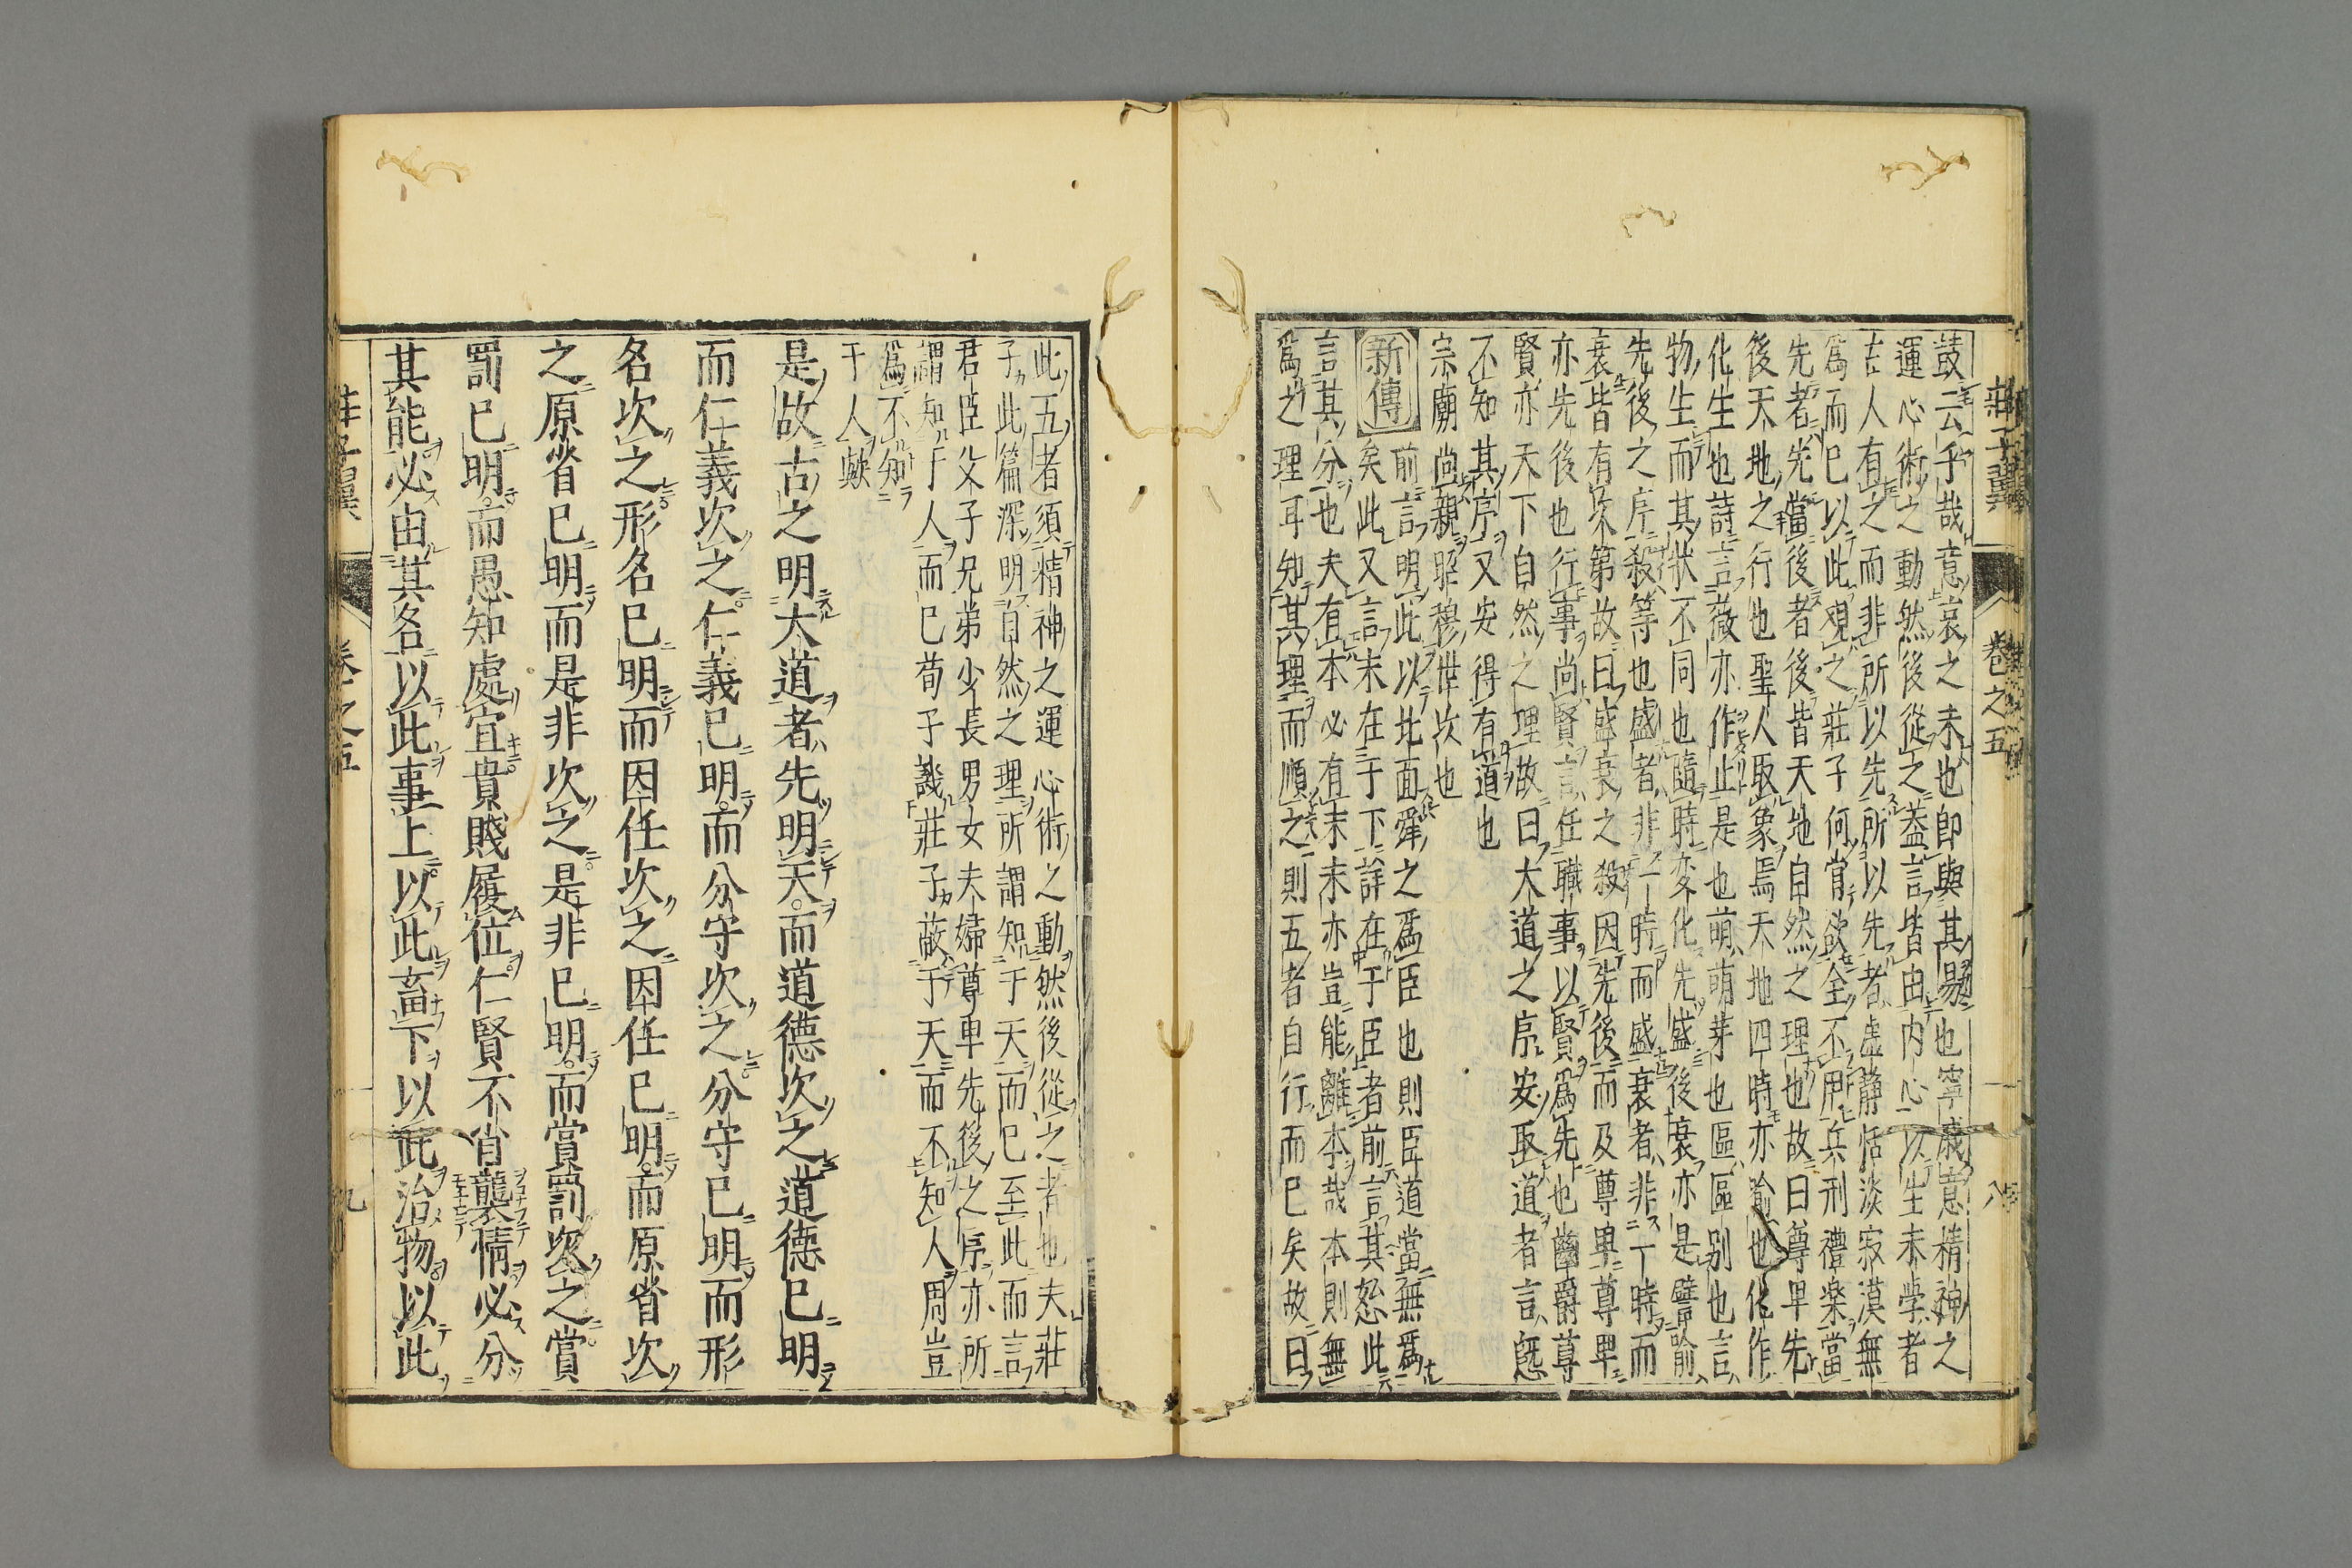 莊子翼 卷之五 八
鼓云乎哉意哀之末也卽與其易也寧戚意精神之
運心術之動然後從之葢言皆由内心以生末學者
古人有之而非所以先所以先者虚静恬淡寂漠無
爲而已以此観之莊子何嘗欲全不用兵刑禮楽當
先者先當後者後皆天地自然之理也故曰尊卑先
後天地之行也聖人取象焉天地四時亦喩也化作
化生也詩言薇亦作止是也萌萌芽也區區别也言
物生而其狀不同也隨時変化先盛後衰亦是譬喻
先後之序殺等也盛者非一時而盛衰者非一時而
衰皆有次第故曰盛衰之殺因先後而及尊卑尊卑
亦先後也行事尚賢言任職事以賢爲先也齒爵尊
賢亦天下自然之理故曰大道之序安取道者言旣
不知其序又安得有道也
宗廟尚親昭穆世次也
新傳 前言明此以北面舜之爲臣也則臣道當無爲
矣此又言末在于下詳在于臣者前言其恕此
言其分也夫有本必有末末亦豈能離本哉本則無
爲之理耳知其理而順之則五者自行而已矣故曰
此五者須精神之運心術之動然後從之者也夫莊
子此篇深明自然之理所謂知于天而已至此而言
君臣父子兄弟少長男女夫婦尊卑先後之序亦所
謂知于人而已荀子譏莊子蔽于天而不知人周豈
爲不知
于人歟
是故古之明大道者先明天而道德次之道德已明
而仁義次之仁義已明而分守次之分守已明而形
名次之形名已明而因任次之因任已明而原省次
之原省已明而是非次之是非已明而賞罰次之賞
罰已明而愚知處宜貴賤履位仁賢不肖襲情必分
其能必由其名以此事上以此畜下以此治物以此
莊子翼 卷之五 九